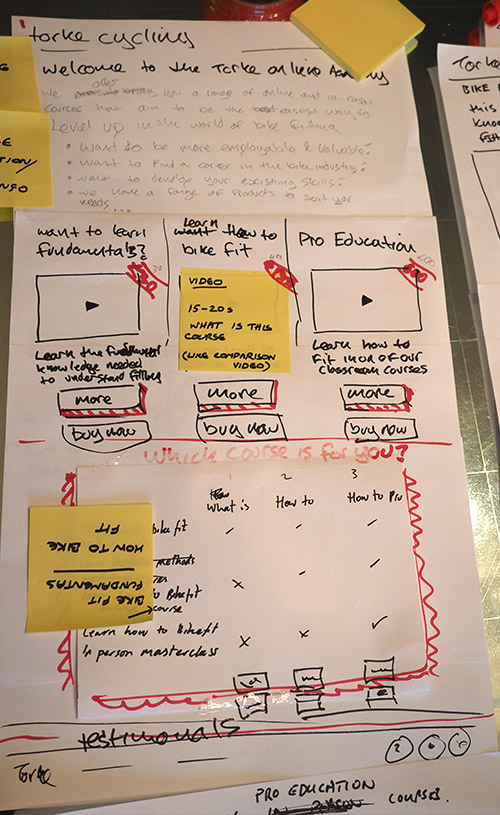 torke cycling
Welcome to the Torke online Academy
We offer you a range of online and in-person
courses that aim to be the easiest way to
Level up in the world of bike fitting
• Want to be more employable & valuable?
• Want to find a career in the bike industry?
• Want to develop your existing skills?
• We have a range of products to suit your
needs...
want to learn
fundamentals?
Learn
how to
bike fit
Pro Education
VIDEO
15-20s
WHAT IS THIS
COURSE
(LIKE COMPARISON
VIDEO)
Learn the fundamental
knowledge needed
to understand fitting
Learn how to
fit in one of our
classroom courses
more
more
more
buy now
buy now
buy now
Which course is for you?
1 2 3
What is
How to
How to Pro
bike fit
methods
to Bikefit
course
HOW TO BIKE
FIT
BIKE FIT
FUNDAMENTAS
Learn how to Bikefit
In person masterclass
testimonials
Torke
PRO EDUCATION
IN PERSON COURSES.
Torke
BIKE
this
know
fit
INFO